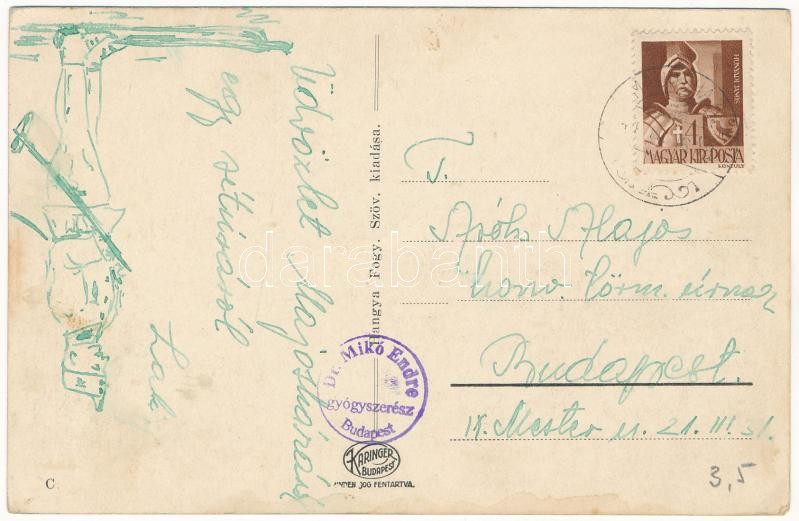 Üdvözlet Majosházáról
egy sítúráról
Laki
Hangya Fogy. Szöv. kiadása.
HUNYADI JÁNOS
4
MAGYAR KIR. POSTA
KONTULY
T.
Alajos
honv. törm. úrnak
Budapest.
IX. Mester u. 21. III. 51.
Dr. Mikó Endre
gyógyszerész
Budapest
KARINGER
BUDAPEST
MINDEN JOG FENTARTVA.
C.
3,5
darabanth